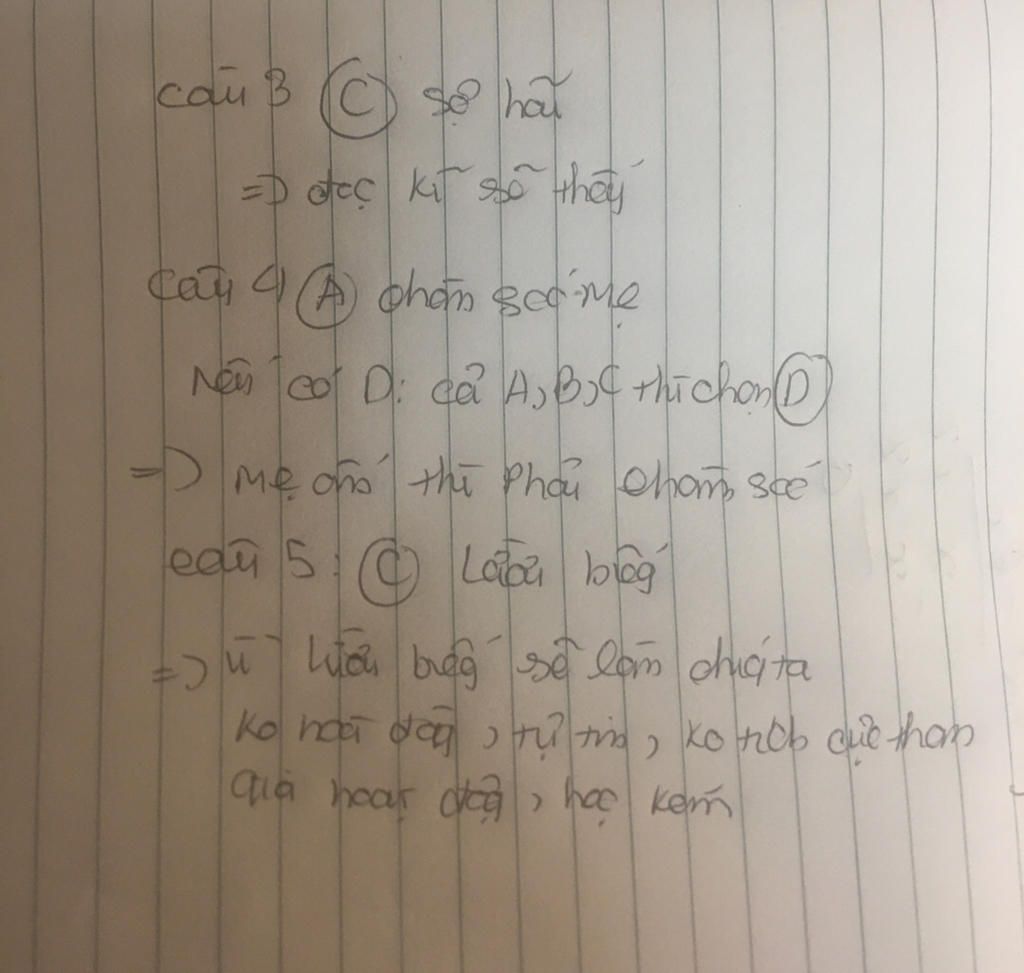 câu 3 (C) sợ hãi
=> đọc kĩ sẽ thấy
câu 4 (A) chăm sóc mẹ
Nếu có D: cả A, B, C thì chọn (D)
=> mẹ ốm thì phải chăm sóc
câu 5: (C) Lười biếng
=> Vì lười biếng sẽ làm chúng ta
ko năng động, tự tin, ko tích cực tham
gia hoạt động, học kém